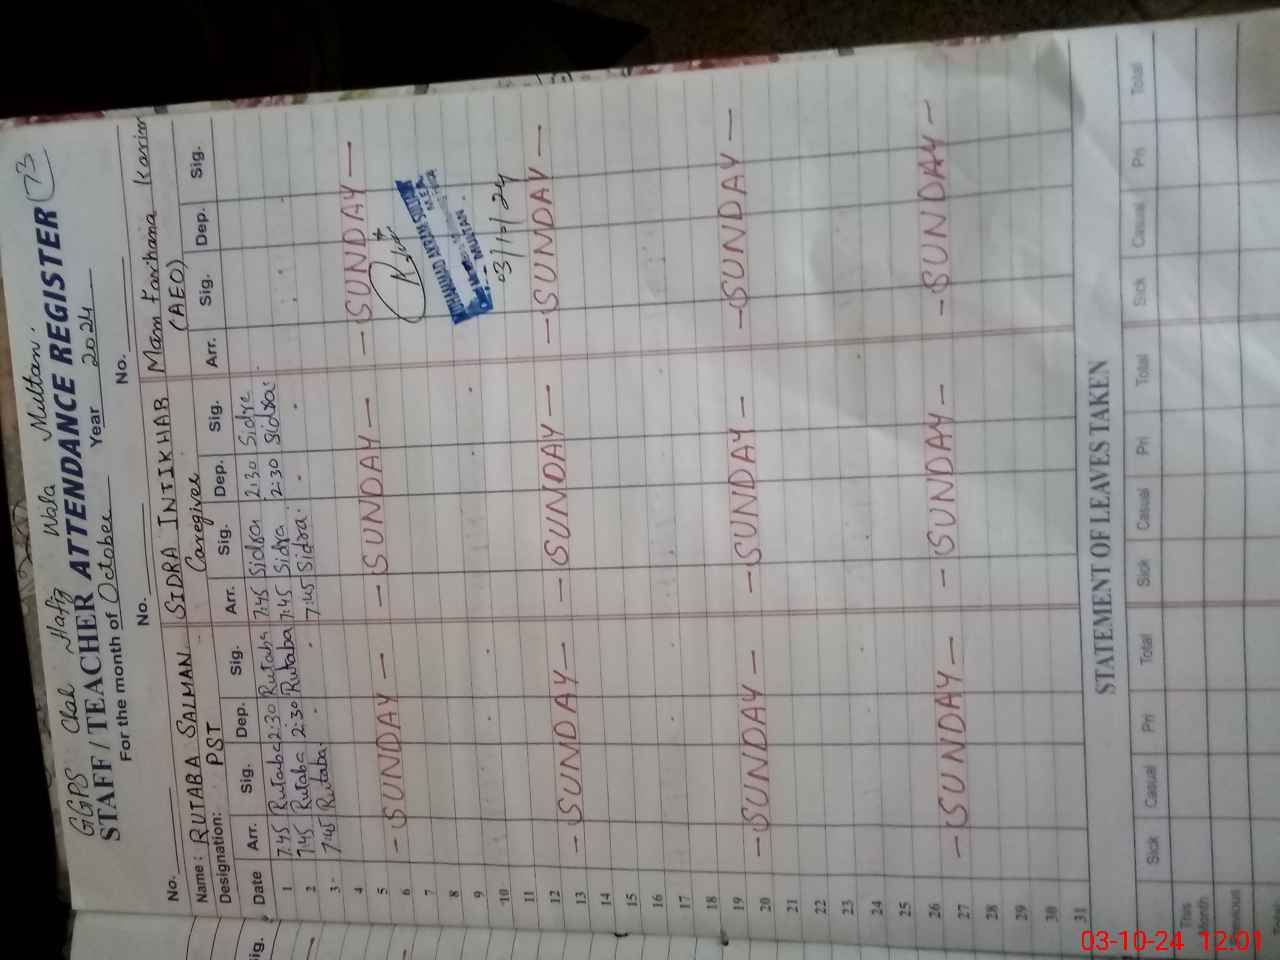 GGPS Chal Hafiz Wala Multani.
STAFF / TEACHER ATTENDANCE REGISTER 73
For the month of October Year 2024
No. No. No.
Name: RUTABA SALMAN SIDRA INTIKHAB Mam Farhana Karim
Designation: PST Caregiver (AEO)
Date Arr. Sig. Dep. Sig. Arr. Sig. Dep. Sig. Arr. Sig. Dep. Sig.
1 7:45 Rutaba 2:30 Rutaba 7:45 Sidra 2:30 Sidra
2 7:45 Rutaba 2:30 Rutaba 7:45 Sidra 2:30 Sidra
3 7:45 Rutaba 7:45 Sidra
4
5
6 - SUNDAY - - SUNDAY - - SUNDAY -
7
8 MUHAMMAD AKRAM
9 MULTAN.
10 03/10/24
11
12
13 - SUNDAY - - SUNDAY - - SUNDAY -
14
15
16
17
18
19
20 - SUNDAY - - SUNDAY - - SUNDAY -
21
22
23
24
25
26
27 - SUNDAY - - SUNDAY - - SUNDAY -
28
29
30
31
STATEMENT OF LEAVES TAKEN
Sick Casual Pri Total Sick Casual Pri Total Sick Casual Pri Total
This Month
Previous
Sig.
03-10-24 12:01